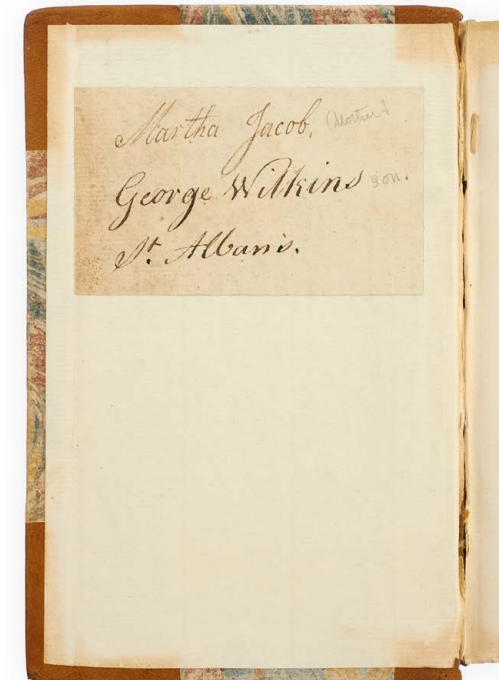 Martha Jacob, (Mother)
George Wilkins son.
St. Alban's.